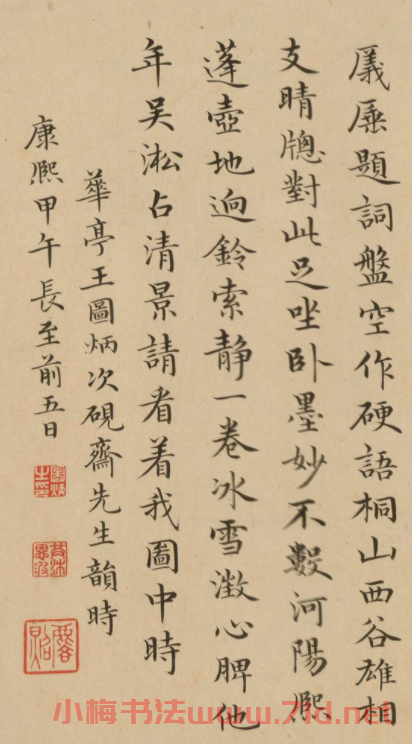 㕒厜題詞盤空作硬語桐山西谷雄相
支晴牕對此足坐卧墨妙不數河陽熙
蓬壺地迥鈴索静一卷冰雪澂心脾他
年吴淞占清景請看着我圖中時
華亭王圖炳次硯齋先生韻時
康熙甲午長至前五日
圖炳之印
小梅书法www.7ld.net